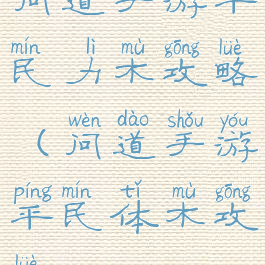 问道手游平
mín lì mù gōng lüè
民力木攻略
wèn dào shǒu yóu
（问道手游
píng mín tǐ mù gōng
平民体木攻
lüè